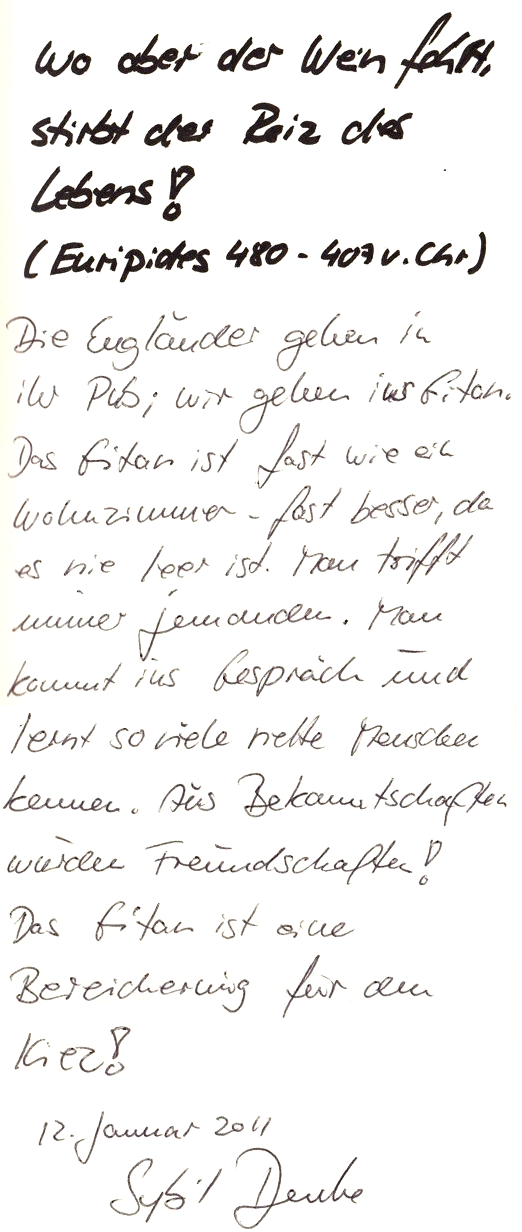 Wo aber der Wein fehlt,
stirbt der Reiz des
Lebens!
(Euripides 480 - 407 v. Chr)
Die Engländer gehen in
ihr Pub; wir gehen ins Gitan.
Das Gitan ist fast wie ein
Wohnzimmer - fast besser, da
es nie leer ist. Man trifft
immer jemanden. Man
kommt ins Gespräch und
lernt so viele nette Menschen
kennen. Aus Bekanntschaften
wurden Freundschaften!
Das Gitan ist eine
Bereicherung für den
Kiez!
12. Januar 2011
Sybil